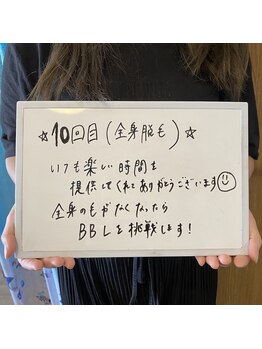 ☆10回目(全身脱毛)☆
いつも楽しい時間を
提供してくれてありがとうございます☺
全身のもがなくなったら
BBLを挑戦します!